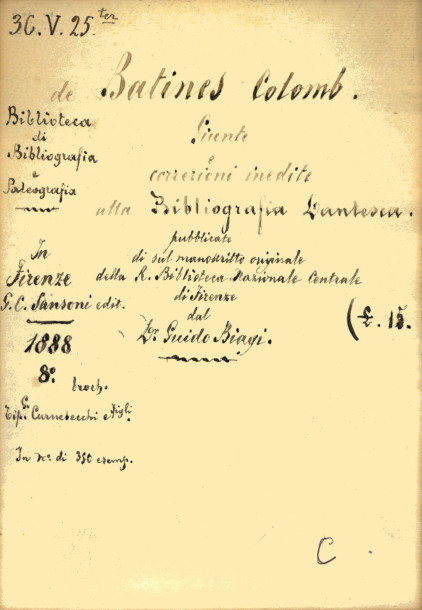 3C.V.25.ter
de Batines Colomb.
Giunte
e
correzioni inedite
alla Bibliografia Dantesca.
pubblicate
di sul manoscritto originale
della R. Biblioteca Nazionale Centrale
di Firenze
dal
Dr. Guido Biagi.
Biblioteca
di
Bibliografia
e
Paleografia
In
Firenze
G.C. Sansoni edit.
1888
8.º
broch.
Tip. G. Carnesecchi e Figli.
In nº. di 350 esemp.
(£. 15.
C.